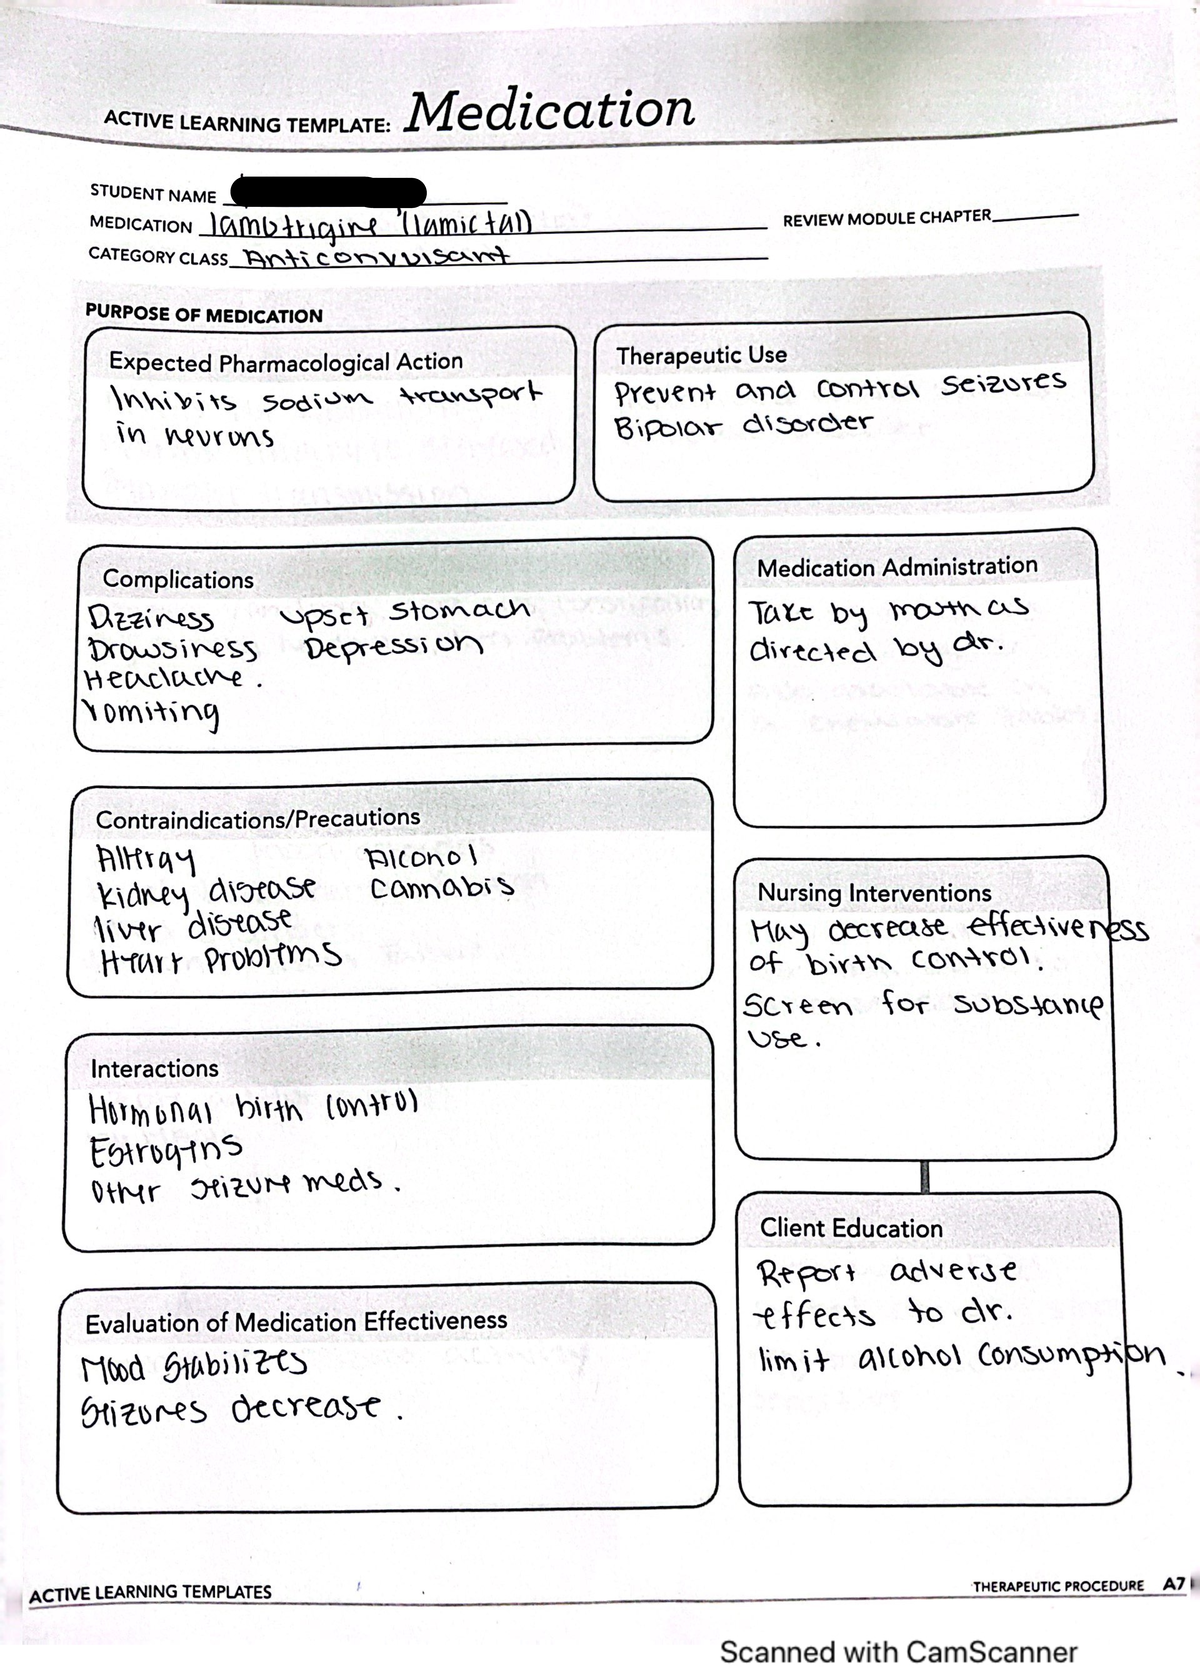 ACTIVE LEARNING TEMPLATE: Medication
STUDENT NAME
MEDICATION lamotrigine (lamictal)
REVIEW MODULE CHAPTER
CATEGORY CLASS Anticonvulsant
PURPOSE OF MEDICATION
Expected Pharmacological Action
Inhibits sodium transport
in neurons
Therapeutic Use
Prevent and control seizures
Bipolar disorder
Complications
Dizziness upset stomach
Drowsiness Depression
Headache.
Vomiting
Medication Administration
Take by mouth as
directed by dr.
Contraindications/Precautions
Allergy Alcohol
kidney disease cannabis
liver disease
Heart problems
Nursing Interventions
May decrease effectiveness
of birth control.
Screen for substance
use.
Interactions
Hormonal birth control
Estrogens
other seizure meds.
Client Education
Report adverse
effects to dr.
limit alcohol consumption.
Evaluation of Medication Effectiveness
Mood Stabilizes
Seizures decrease.
ACTIVE LEARNING TEMPLATES
THERAPEUTIC PROCEDURE A7
Scanned with CamScanner